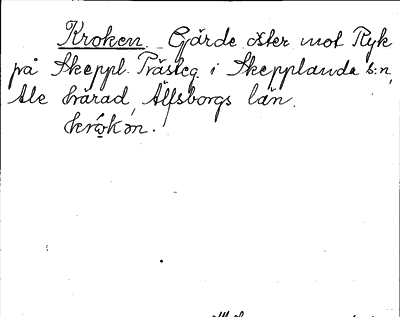 Kroken. Gärde öster mot Ryk
på Skeppl. Prästeg. i Skepplanda s:n,
Ale härad, Älfsborgs län.
krokən.